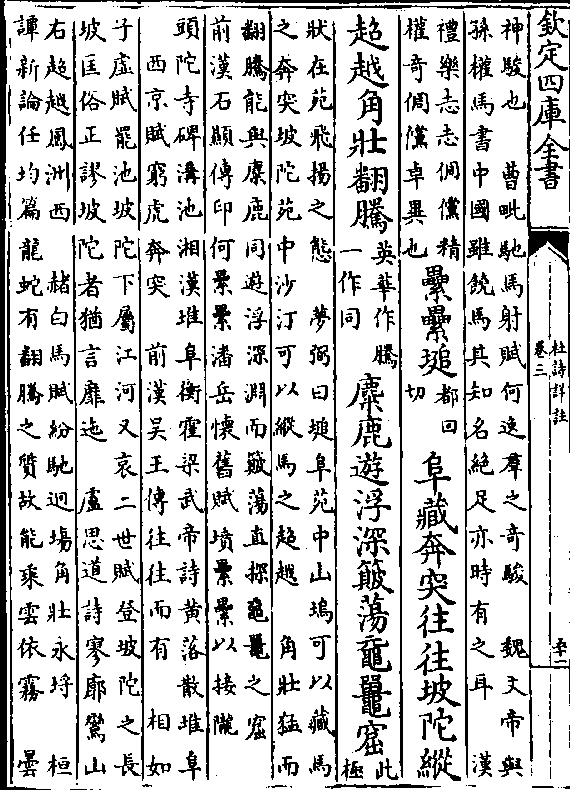 欽定四庫全書
杜詩詳註
卷三
神駿也　曹毗馳馬射賦何逸羣之奇駿　魏文帝與
孫權馬書中國雖饒馬其知名絕足亦時有之耳　漢
禮樂志志俶儻精
權奇俶儻卓異也
纍纍塠
都回
切
阜藏奔突往往坡陀縱
超越角壯翻騰
英華作騰
一作同
麋鹿遊浮深簸蕩黿鼉窟
此
極
狀在苑飛揚之態　夢弼曰塠阜苑中山塢可以藏馬
之奔突坡陀苑中沙汀可以縱馬之超越　角壯猛而
翻騰能與麋鹿同遊浮深淵而簸蕩直探黿鼉之窟
前漢石顯傳印何纍纍潘岳懷舊賦墳纍纍以接隴
頭陀寺碑溝池湘漢堆阜衡霍梁武帝詩黃落散堆阜
西京賦窮虎奔突　前漢吳王傳往往而有　相如
子虛賦罷池坡陀下屬江河又哀二世賦登坡陀之長
坡匡俗正謬坡陀者猶言靡迤　盧思道詩寥廓鶩山
右超越鳳洲西　赭白馬賦紛馳迥場角壯永埒　桓
譚新論任均篇龍蛇有翻騰之質故能乘雲依霧　曇